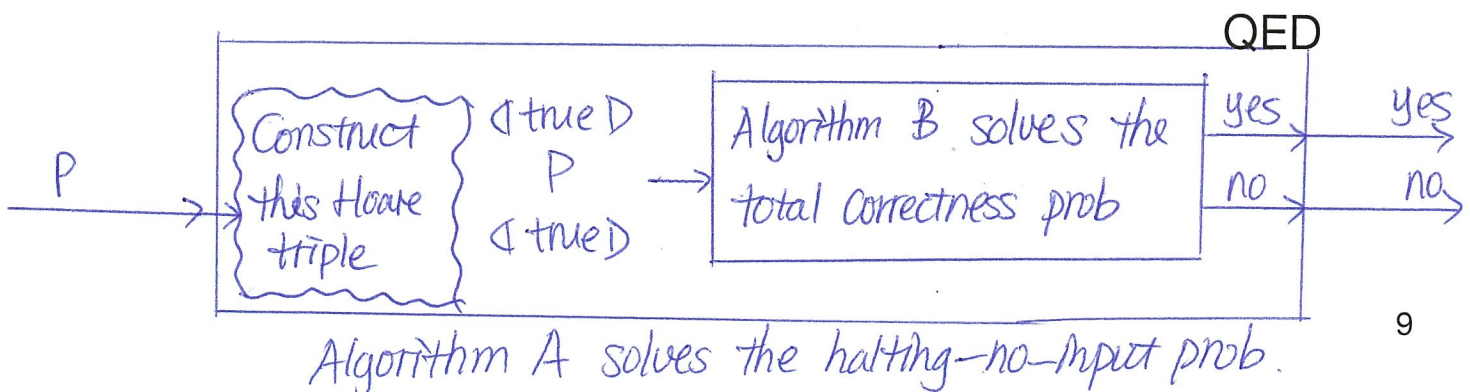 QED
Construct
this Hoare
triple
⦇true⦈
P
⦇true⦈
P
Algorithm B solves the
total correctness prob
yes
no
yes
no
9
Algorithm A solves the halting-no-input prob.